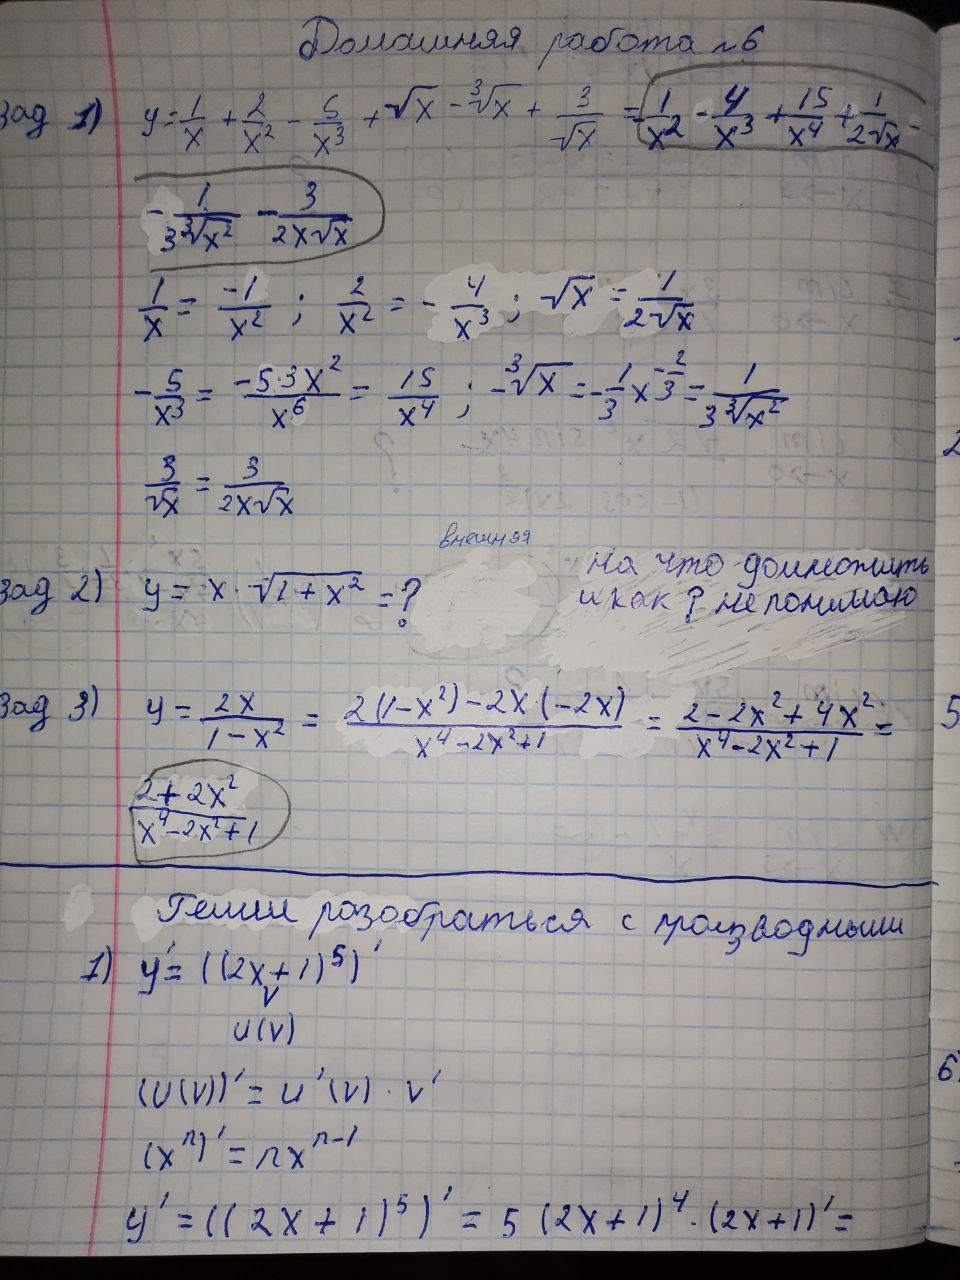 Домашняя работа №6
Зад 1) y = 1/x + 2/x² - 5/x³ + √x - ³√x + 3/√x = -1/x² - 4/x³ + 15/x⁴ + 1/2√x -
- 1/3³√x² - 3/2x√x
1/x = -1/x² ; 2/x² = - 4/x³ ; √x = 1/2√x
- 5/x³ = -5·3x²/x⁶ = 15/x⁴ ; - ³√x = - 1/3 x^-2/3 = 1/3³√x²
3/√x = 3/2x√x
внешняя
Зад 2) y = x · √1+x² = ?
на что домножить
и как? не понимаю
Зад 3) y = 2x/1-x² = 2(1-x²)-2x(-2x)/x⁴-2x²+1 = 2-2x²+4x²/x⁴-2x²+1 =
2+2x²/x⁴-2x²+1
разобраться с производными
1) y' = ((2x+1)⁵)'
v
u(v)
(u(v))' = u'(v) · v'
(xⁿ)' = nxⁿ⁻¹
y' = ((2x+1)⁵)' = 5 (2x+1)⁴ · (2x+1)' =
2
5
6